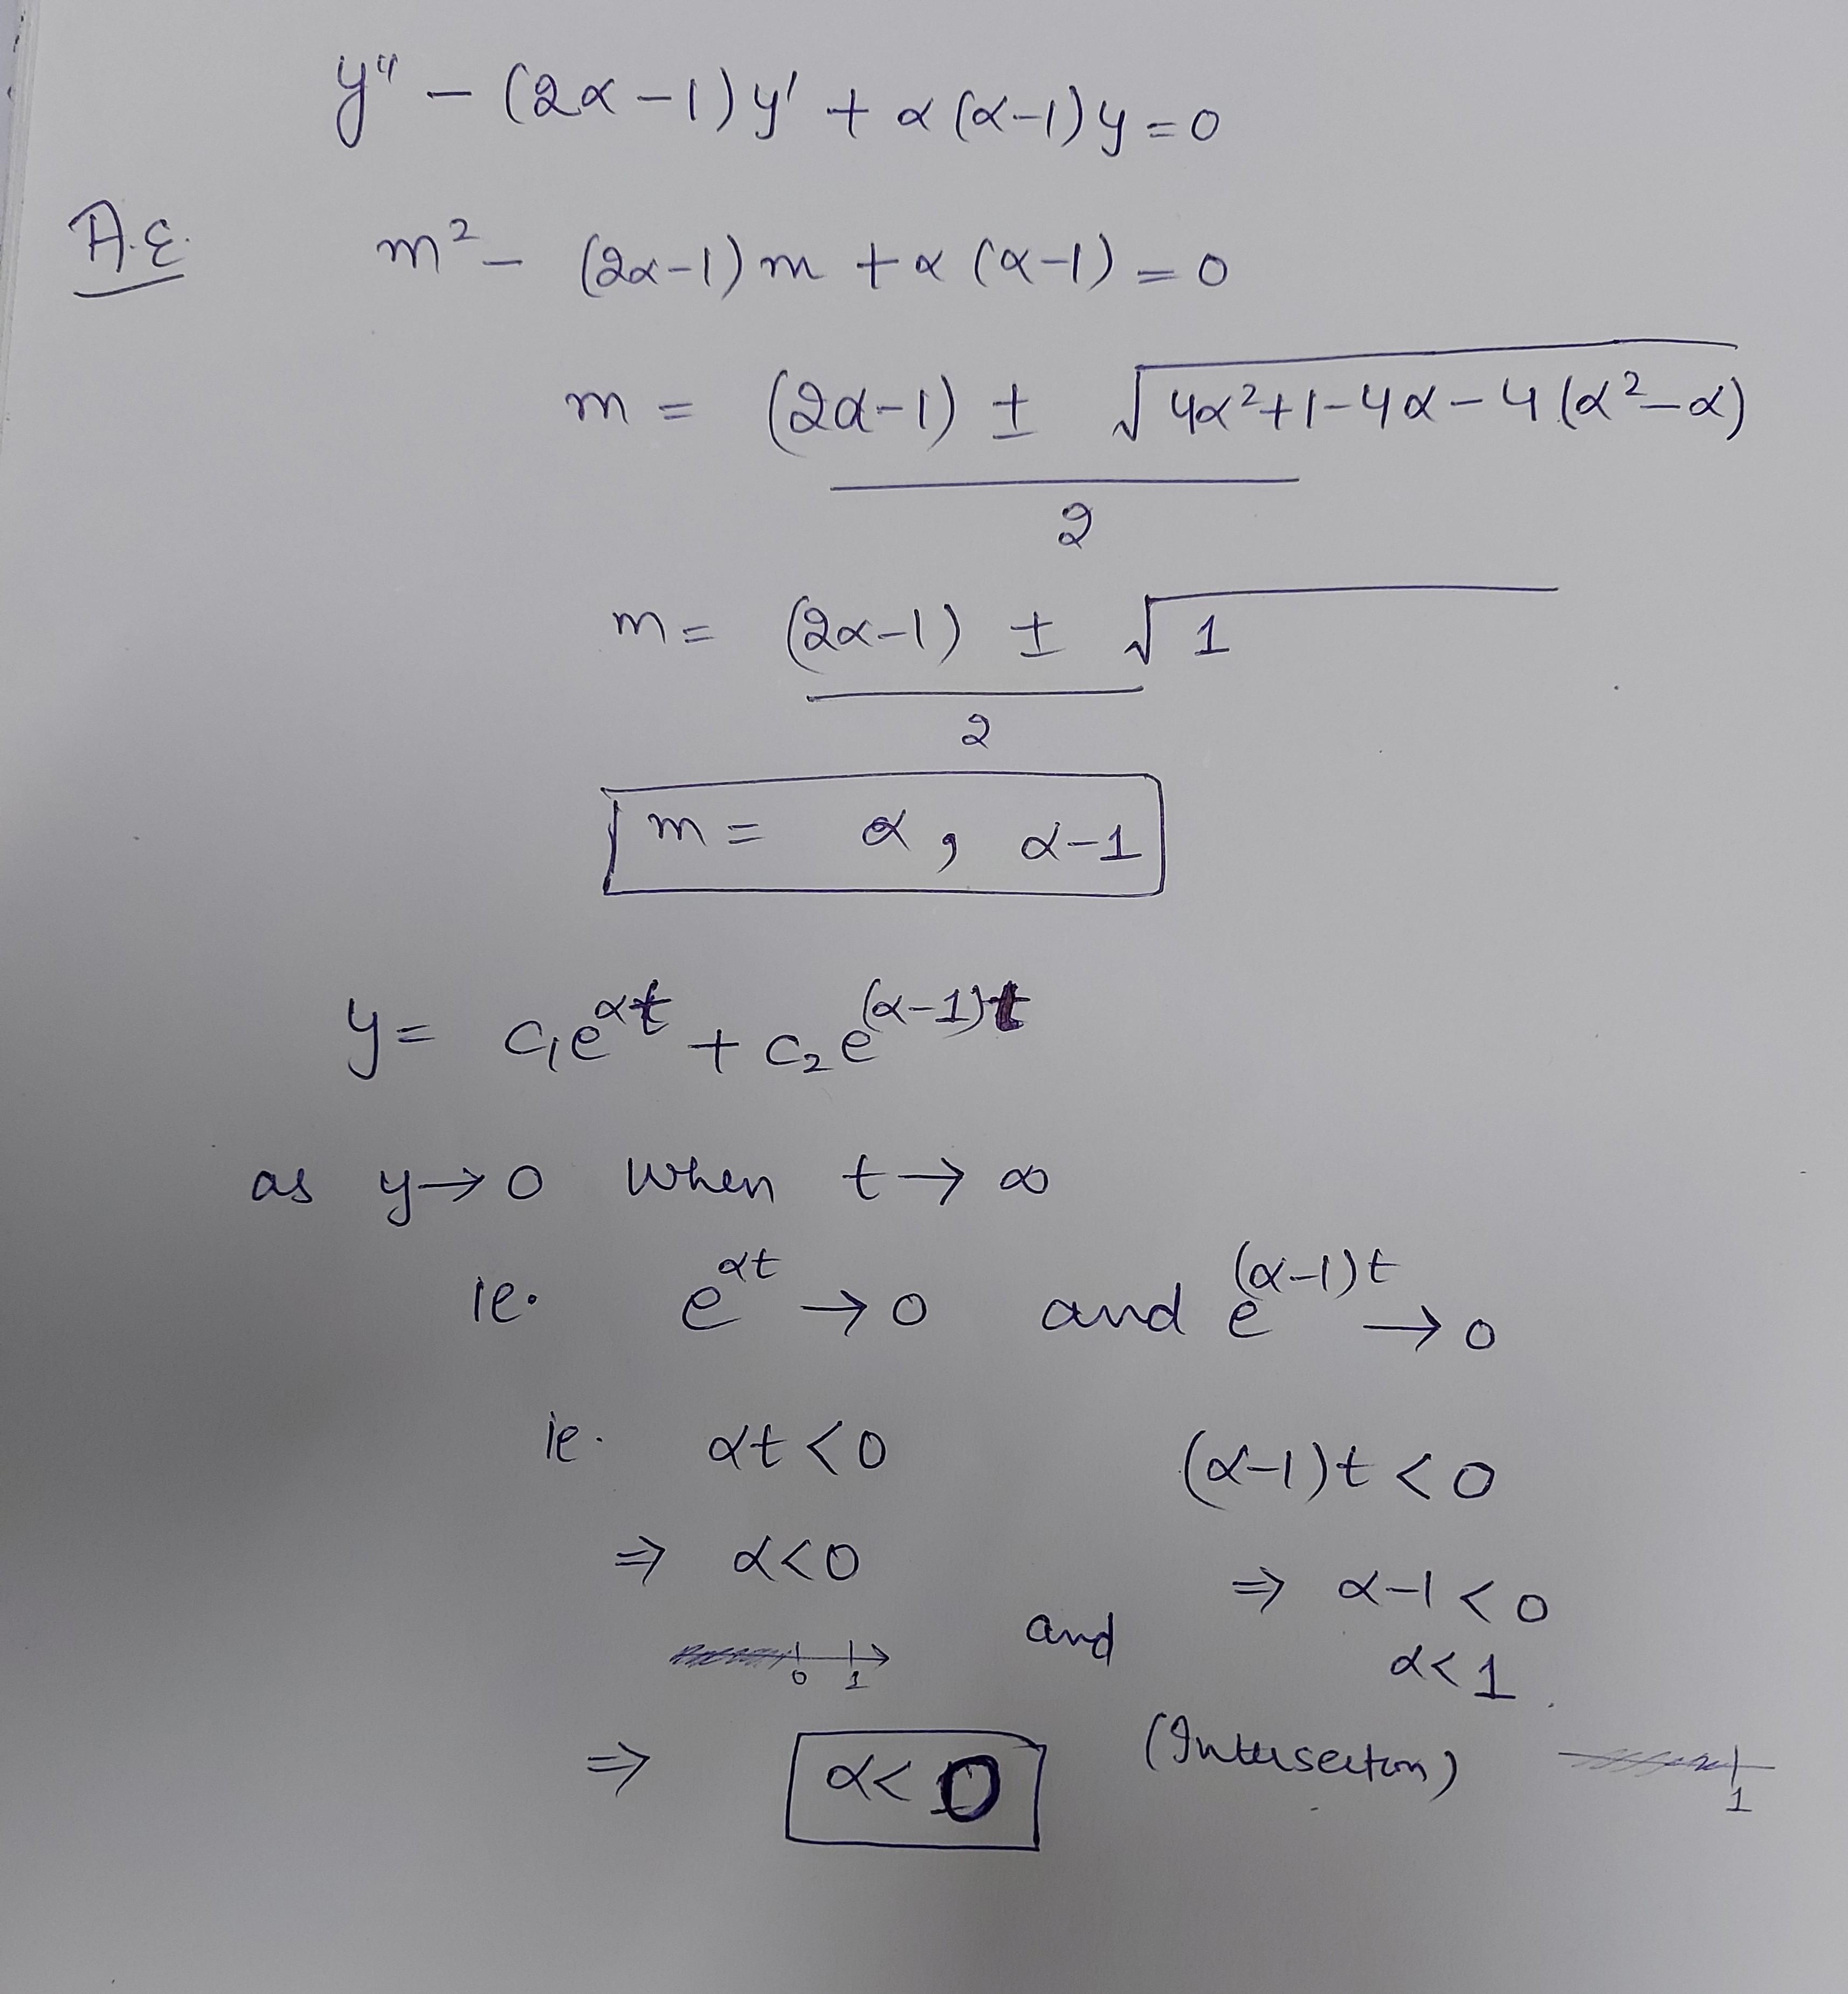 y'' - (2α-1)y' + α(α-1)y = 0
A.E. m² - (2α-1)m + α(α-1) = 0
m = (2α-1) ± √4α²+1-4α-4(α²-α)
2
m = (2α-1) ± √1
2
m = α, α-1
y = c₁e^αt + c₂e^(α-1)t
as y→0 when t→∞
ie. e^αt → 0 and e^(α-1)t → 0
ie. αt<0 (α-1)t<0
⇒ α<0 ⇒ α-1<0
and
0 1 α<1
⇒ α<0 (Intersection) 1